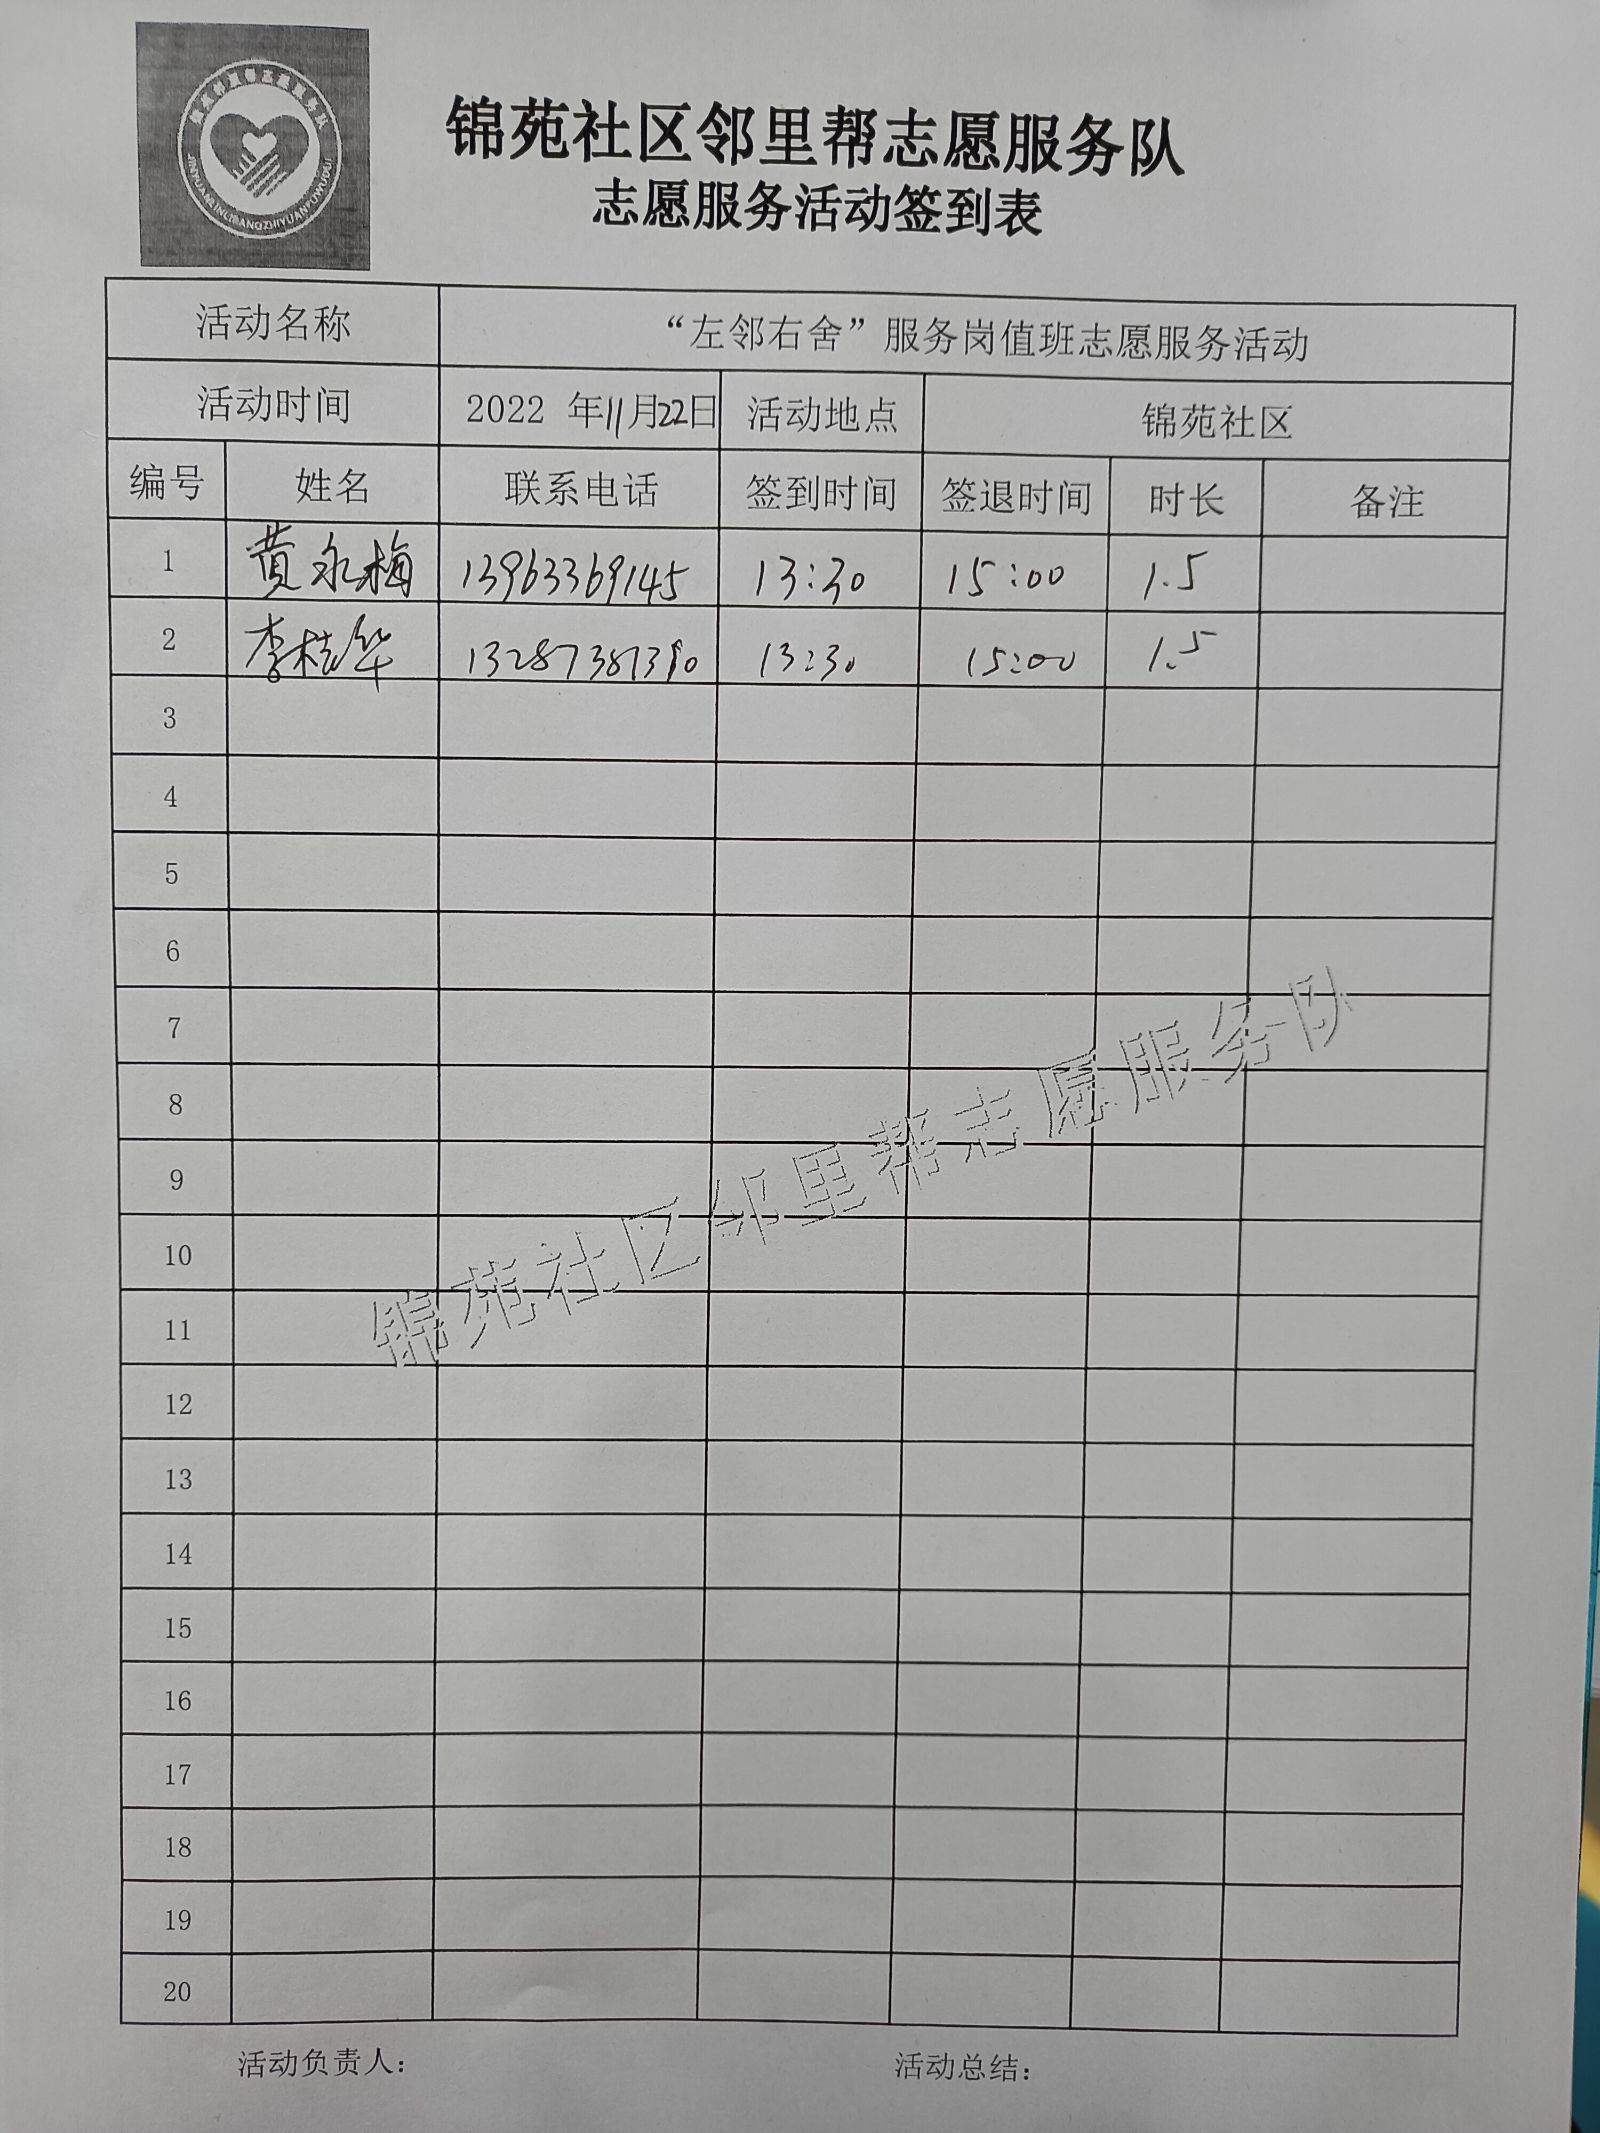 锦苑社区邻里帮志愿服务队
志愿服务活动签到表
活动名称 “左邻右舍”服务岗值班志愿服务活动
活动时间 2022 年11月22日 活动地点 锦苑社区
编号 姓名 联系电话 签到时间 签退时间 时长 备注
1 黄永梅 13963369145 13:30 15:00 1.5
2 李桂华 13:30 15:00 1.5
3
4
5
6
7
8
9
10
11
12
13
14
15
16
17
18
19
20
锦苑社区邻里帮志愿服务队
活动负责人: 活动总结: